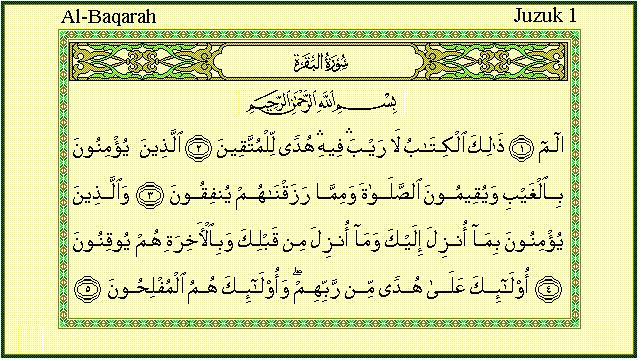 Al-Baqarah
Juzuk 1
سُورَةُ الْبَقَرَة
بِسْمِ اللَّهِ الرَّحْمَٰنِ الرَّحِيمِ
الٓمٓ ﴿١﴾ ذَٰلِكَ الْكِتَابُ لَا رَيْبَ ۛ فِيهِ ۛ هُدًى لِّلْمُتَّقِينَ ﴿٢﴾ الَّذِينَ يُؤْمِنُونَ
بِالْغَيْبِ وَيُقِيمُونَ الصَّلَوٰةَ وَمِمَّا رَزَقْنَاهُمْ يُنفِقُونَ ﴿٣﴾ وَالَّذِينَ
يُؤْمِنُونَ بِمَآ أُنزِلَ إِلَيْكَ وَمَآ أُنزِلَ مِن قَبْلِكَ وَبِالْأَخِرَةِ هُمْ يُوقِنُونَ
﴿٤﴾ أُوْلَٰٓئِكَ عَلَىٰ هُدًى مِّن رَّبِّهِمْ ۖ وَأُوْلَٰٓئِكَ هُمُ الْمُفْلِحُونَ ﴿٥﴾